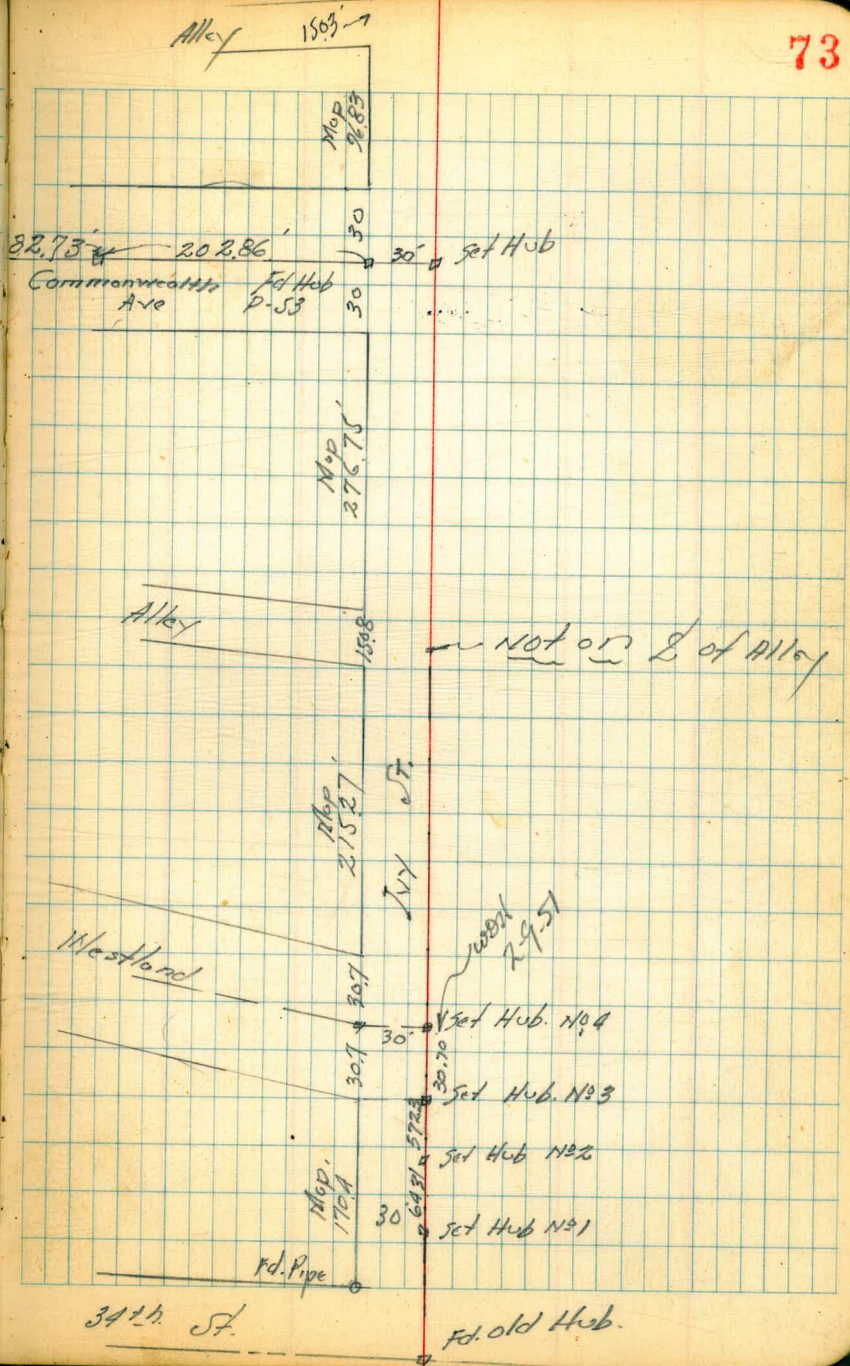 73
Alley 15.03'
Map
96.83
30
82.73' 202.86' 30' Set Hub
Commonwealth Fd Hub
Ave P-53
30
Map
276.75'
Alley
15.08
Not on ℄ of Alley
Map
215.27'
Ivy St.
2-9-51
Westland
30.7
30' Set Hub. No4
30.7 30.70
Set Hub. No3
57.23
Set Hub No2
Map.
170.4
64.31
30' Set Hub No1
Fd. Pipe
34th. St.
Fd. Old Hub.